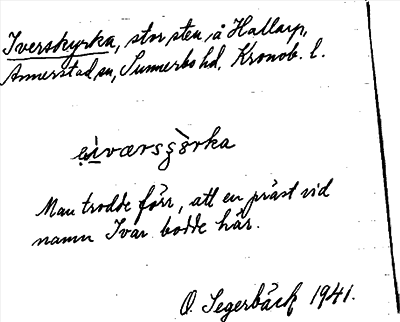 Iverskyrka, stor sten å Hallarp,
Annerstad sn, Sunnerbo hd, Kronob. l.
Man trodde förr, att en präst vid
namn Ivar bodde här.
O. Segerbäck 1941.